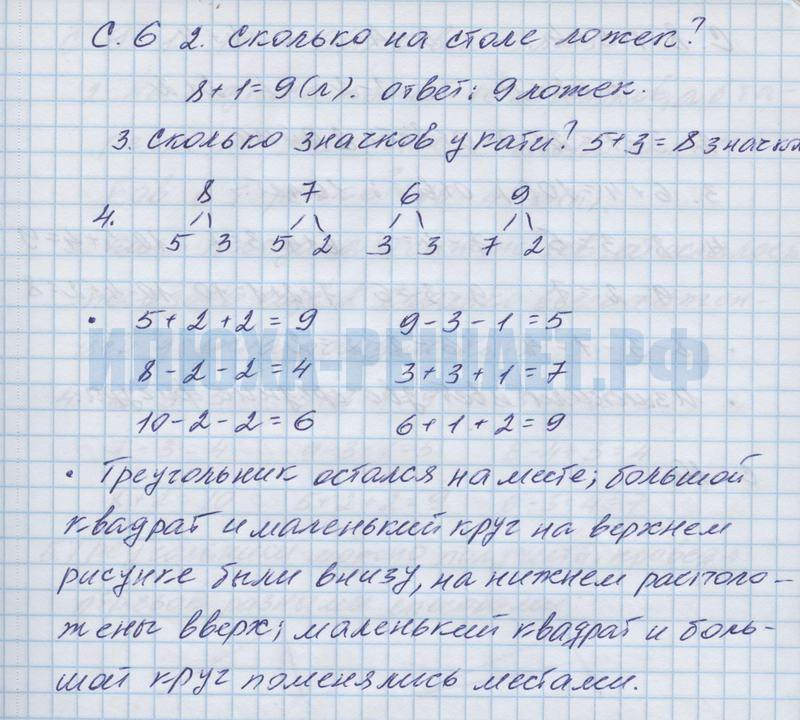 С. 6 2. Сколько на столе ложек?
8 + 1 = 9 (л). Ответ: 9 ложек.
3. Сколько значков у Кати? 5 + 3 = 8 значко
8 7 6 9
4. 5 3 5 2 3 3 7 2
• 5 + 2 + 2 = 9 9 - 3 - 1 = 5
ИЛЮХА-РЕШАЕТ.РФ
8 - 2 - 2 = 4 3 + 3 + 1 = 7
10 - 2 - 2 = 6 6 + 1 + 2 = 9
• Треугольник остался на месте; большой
квадрат и маленький круг на верхнем
рисунке были внизу, на нижнем располо-
жены вверх; маленький квадрат и боль-
шой круг поменялись местами.